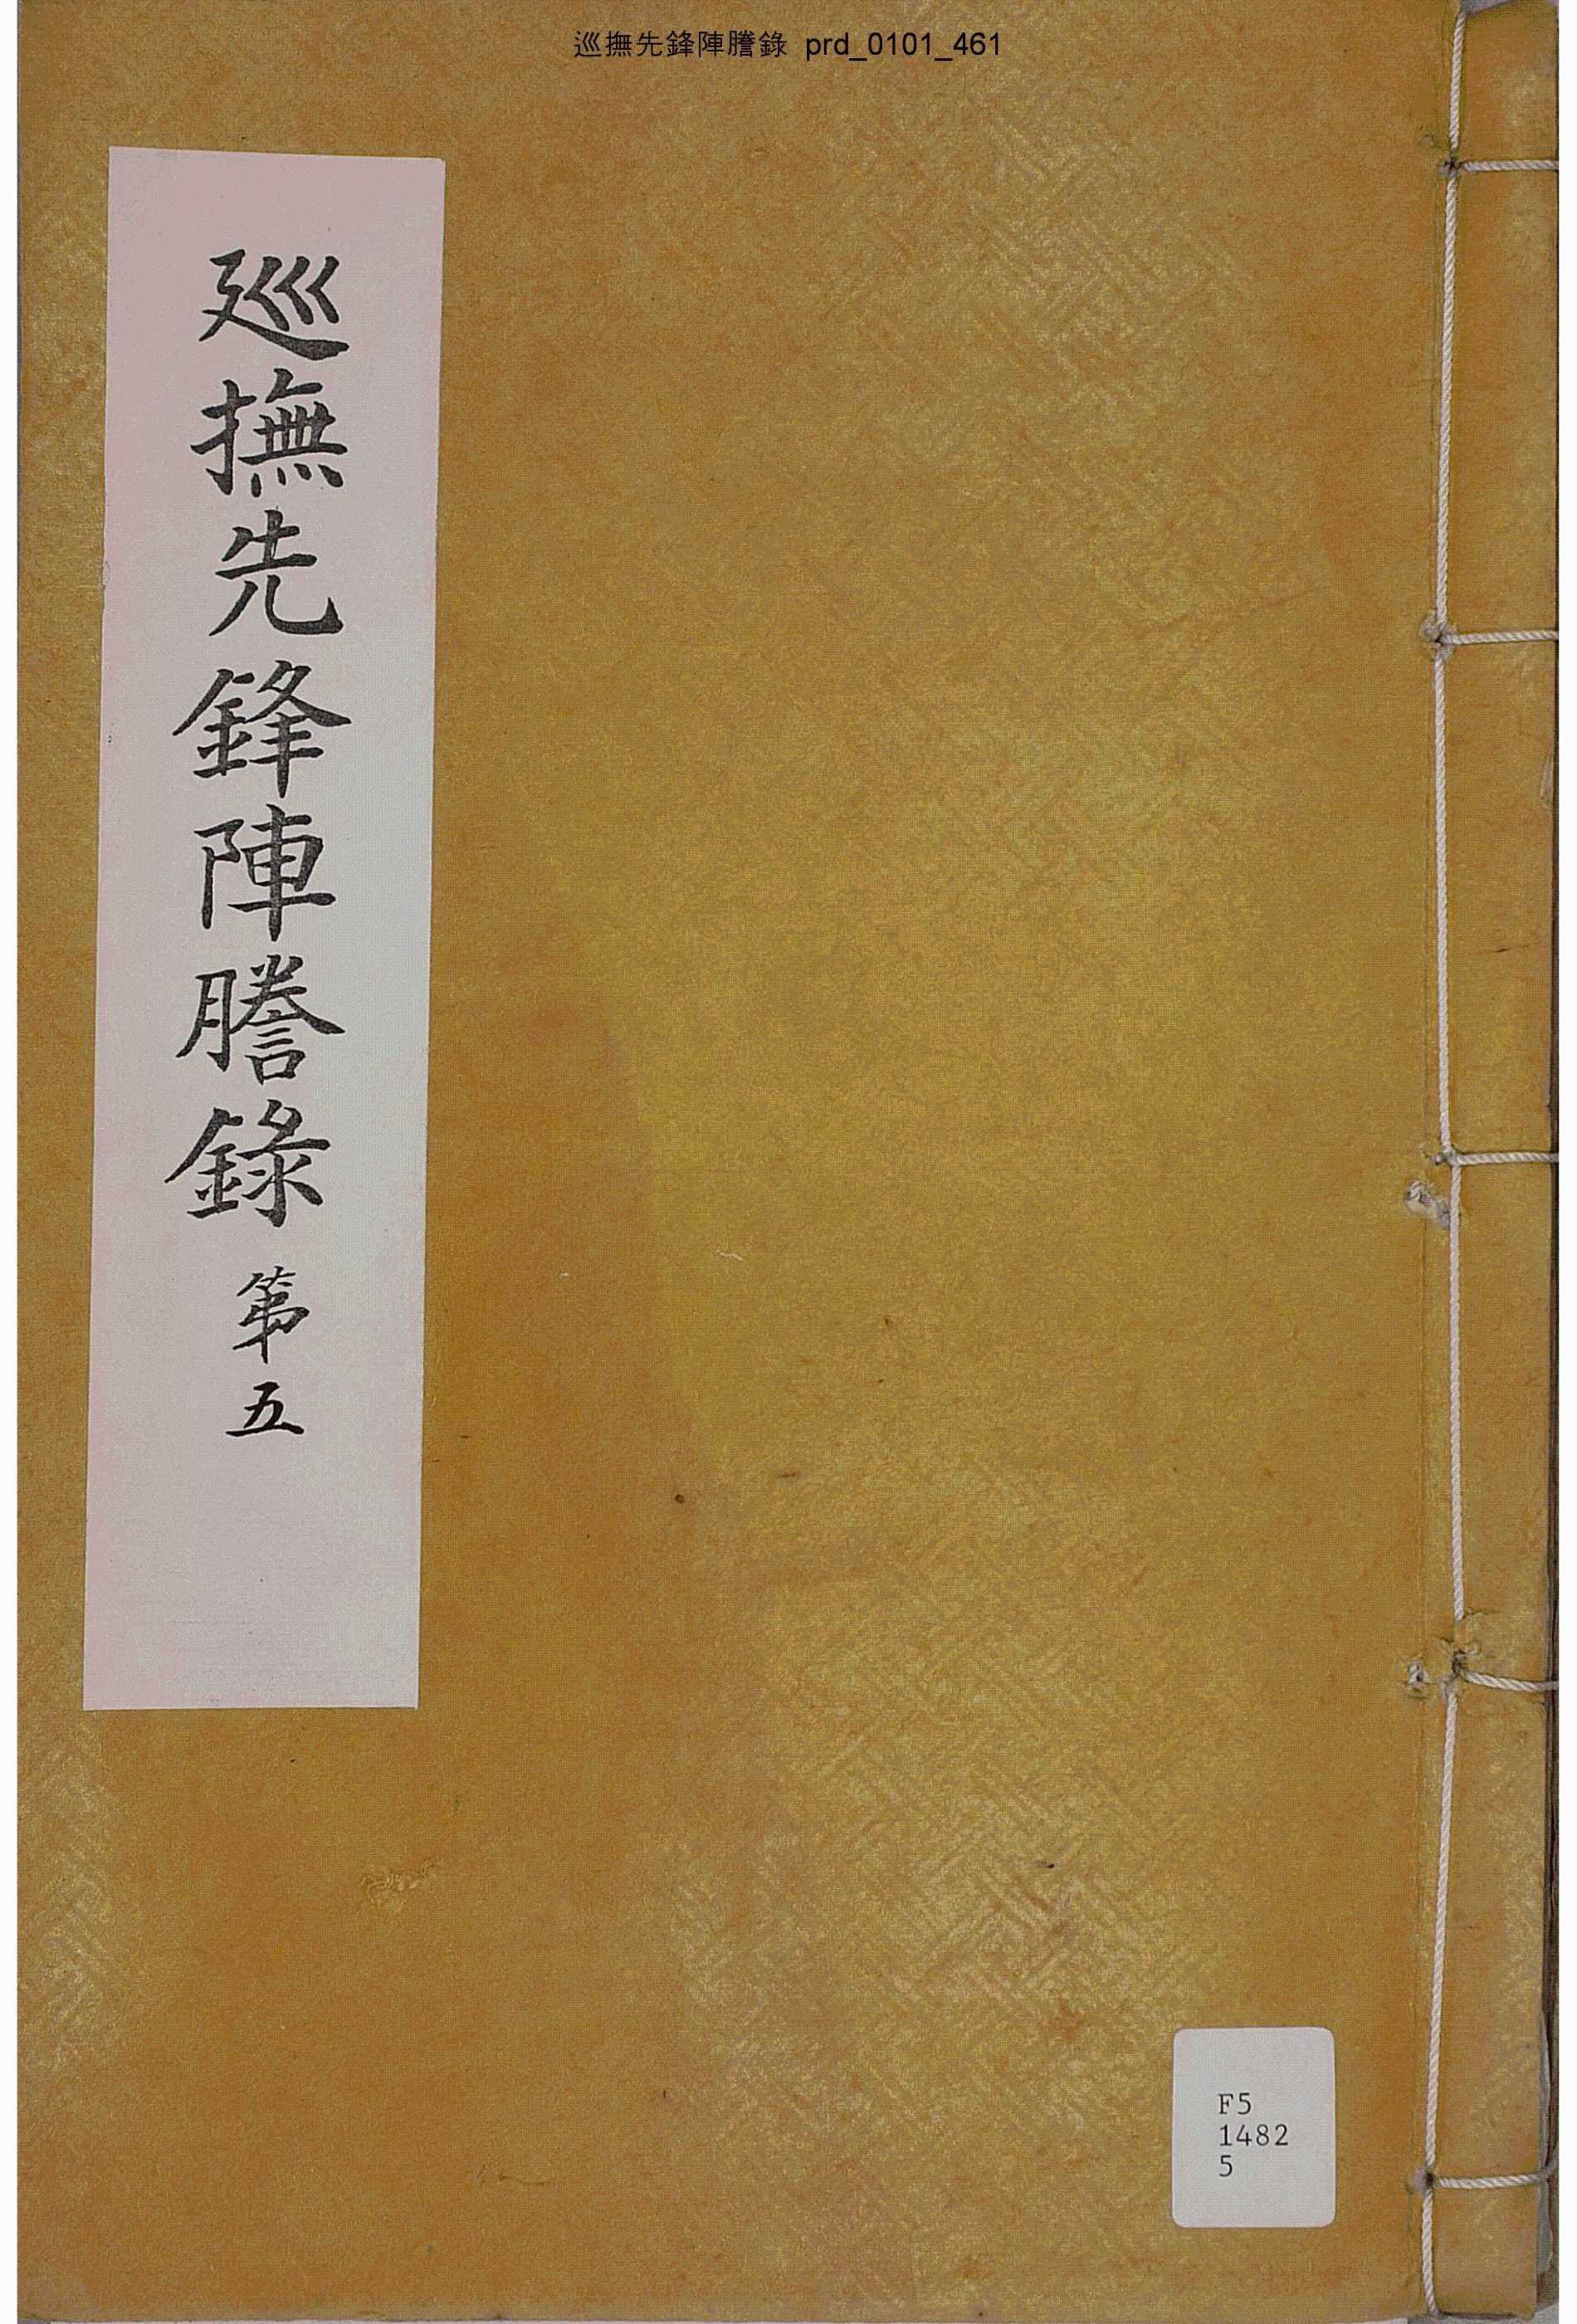 巡撫先鋒陣謄錄 prd_0101_461
廵撫先鋒陣謄錄 第五
F5
1482
5